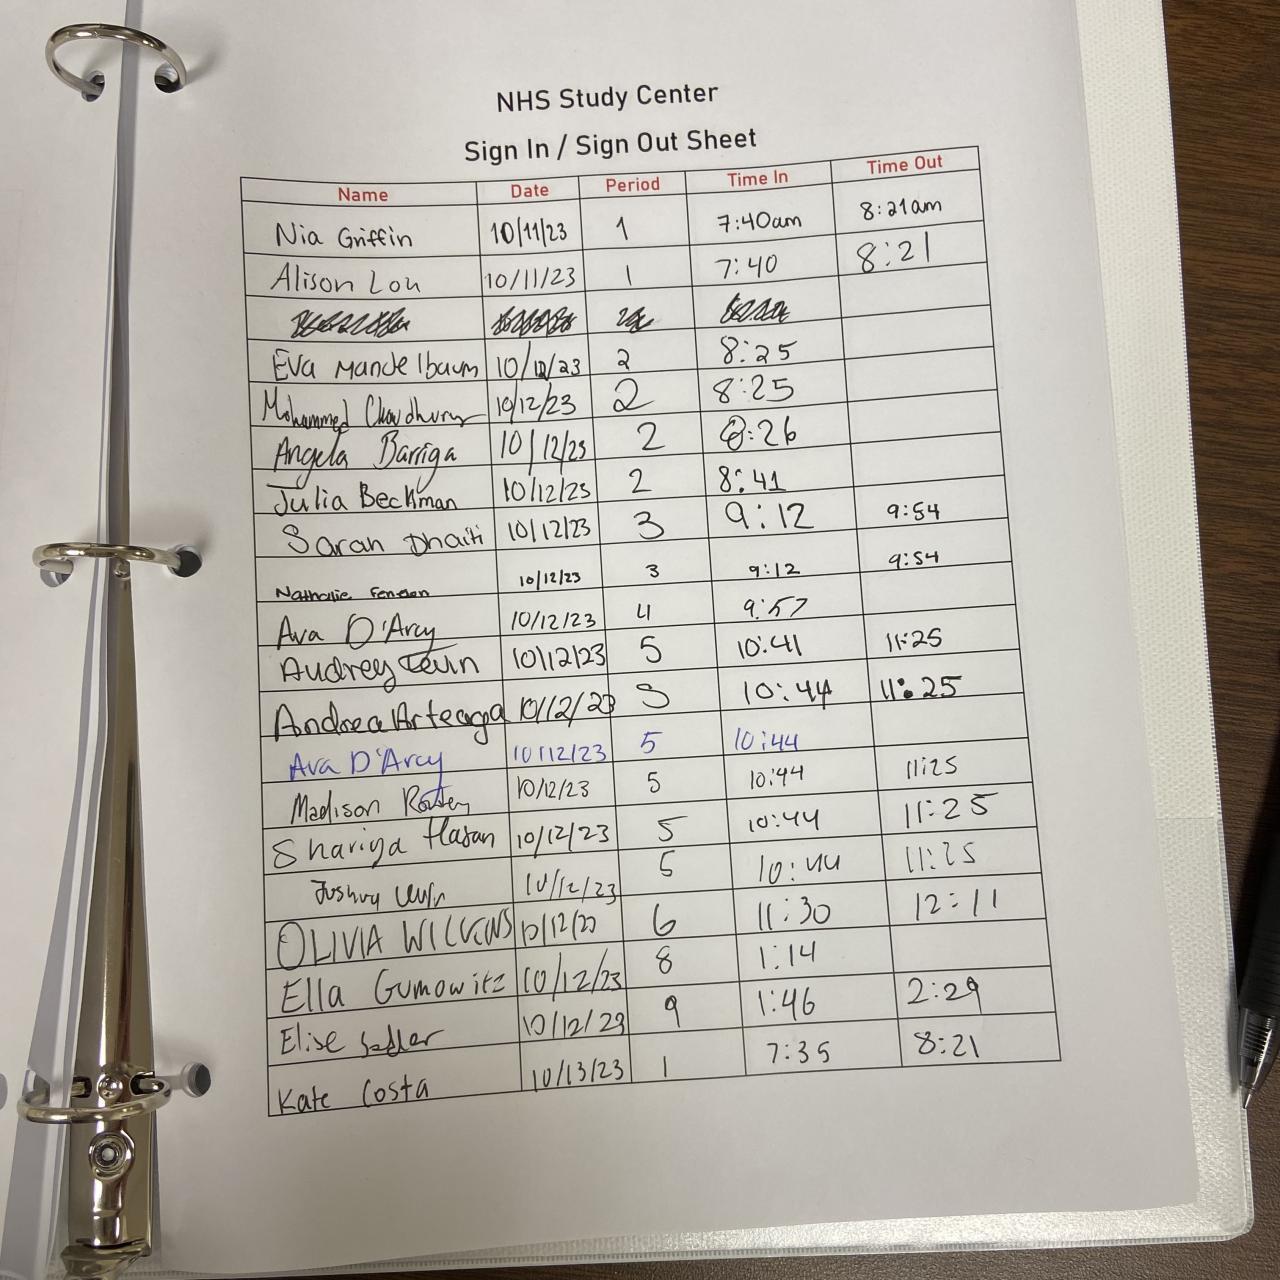 NHS Study Center
Sign In / Sign Out Sheet
Name Date Period Time In Time Out
Nia Griffin 10/11/23 1 7:40am 8:21am
Alison Lou 10/11/23 1 7:40 8:21
Eva Mandelbaum 10/12/23 2 8:25
Mohammed Chowdhury 10/12/23 2 8:25
Angela Barriga 10/12/23 2 8:26
Julia Beckman 10/12/23 2 8:41
Sarah Dhaiti 10/12/23 3 9:12 9:54
Nathalie 10/12/23 3 9:12 9:54
Ava D'Arcy 10/12/23 4 9:57
Audrey 10/12/23 5 10:41 11:25
Andrea Arteaga 10/12/23 5 10:44 11:25
Ava D'Arcy 10/12/23 5 10:44
Madison 10/12/23 5 10:44 11:25
Shariya Hasan 10/12/23 5 10:44 11:25
Joshua 10/12/23 5 10:44 11:25
OLIVIA WILKENS 10/12/23 6 11:30 12:11
Ella Gumowitz 10/12/23 8 1:14
Elise Sadler 10/12/23 9 1:46 2:29
Kate Costa 10/13/23 1 7:35 8:21